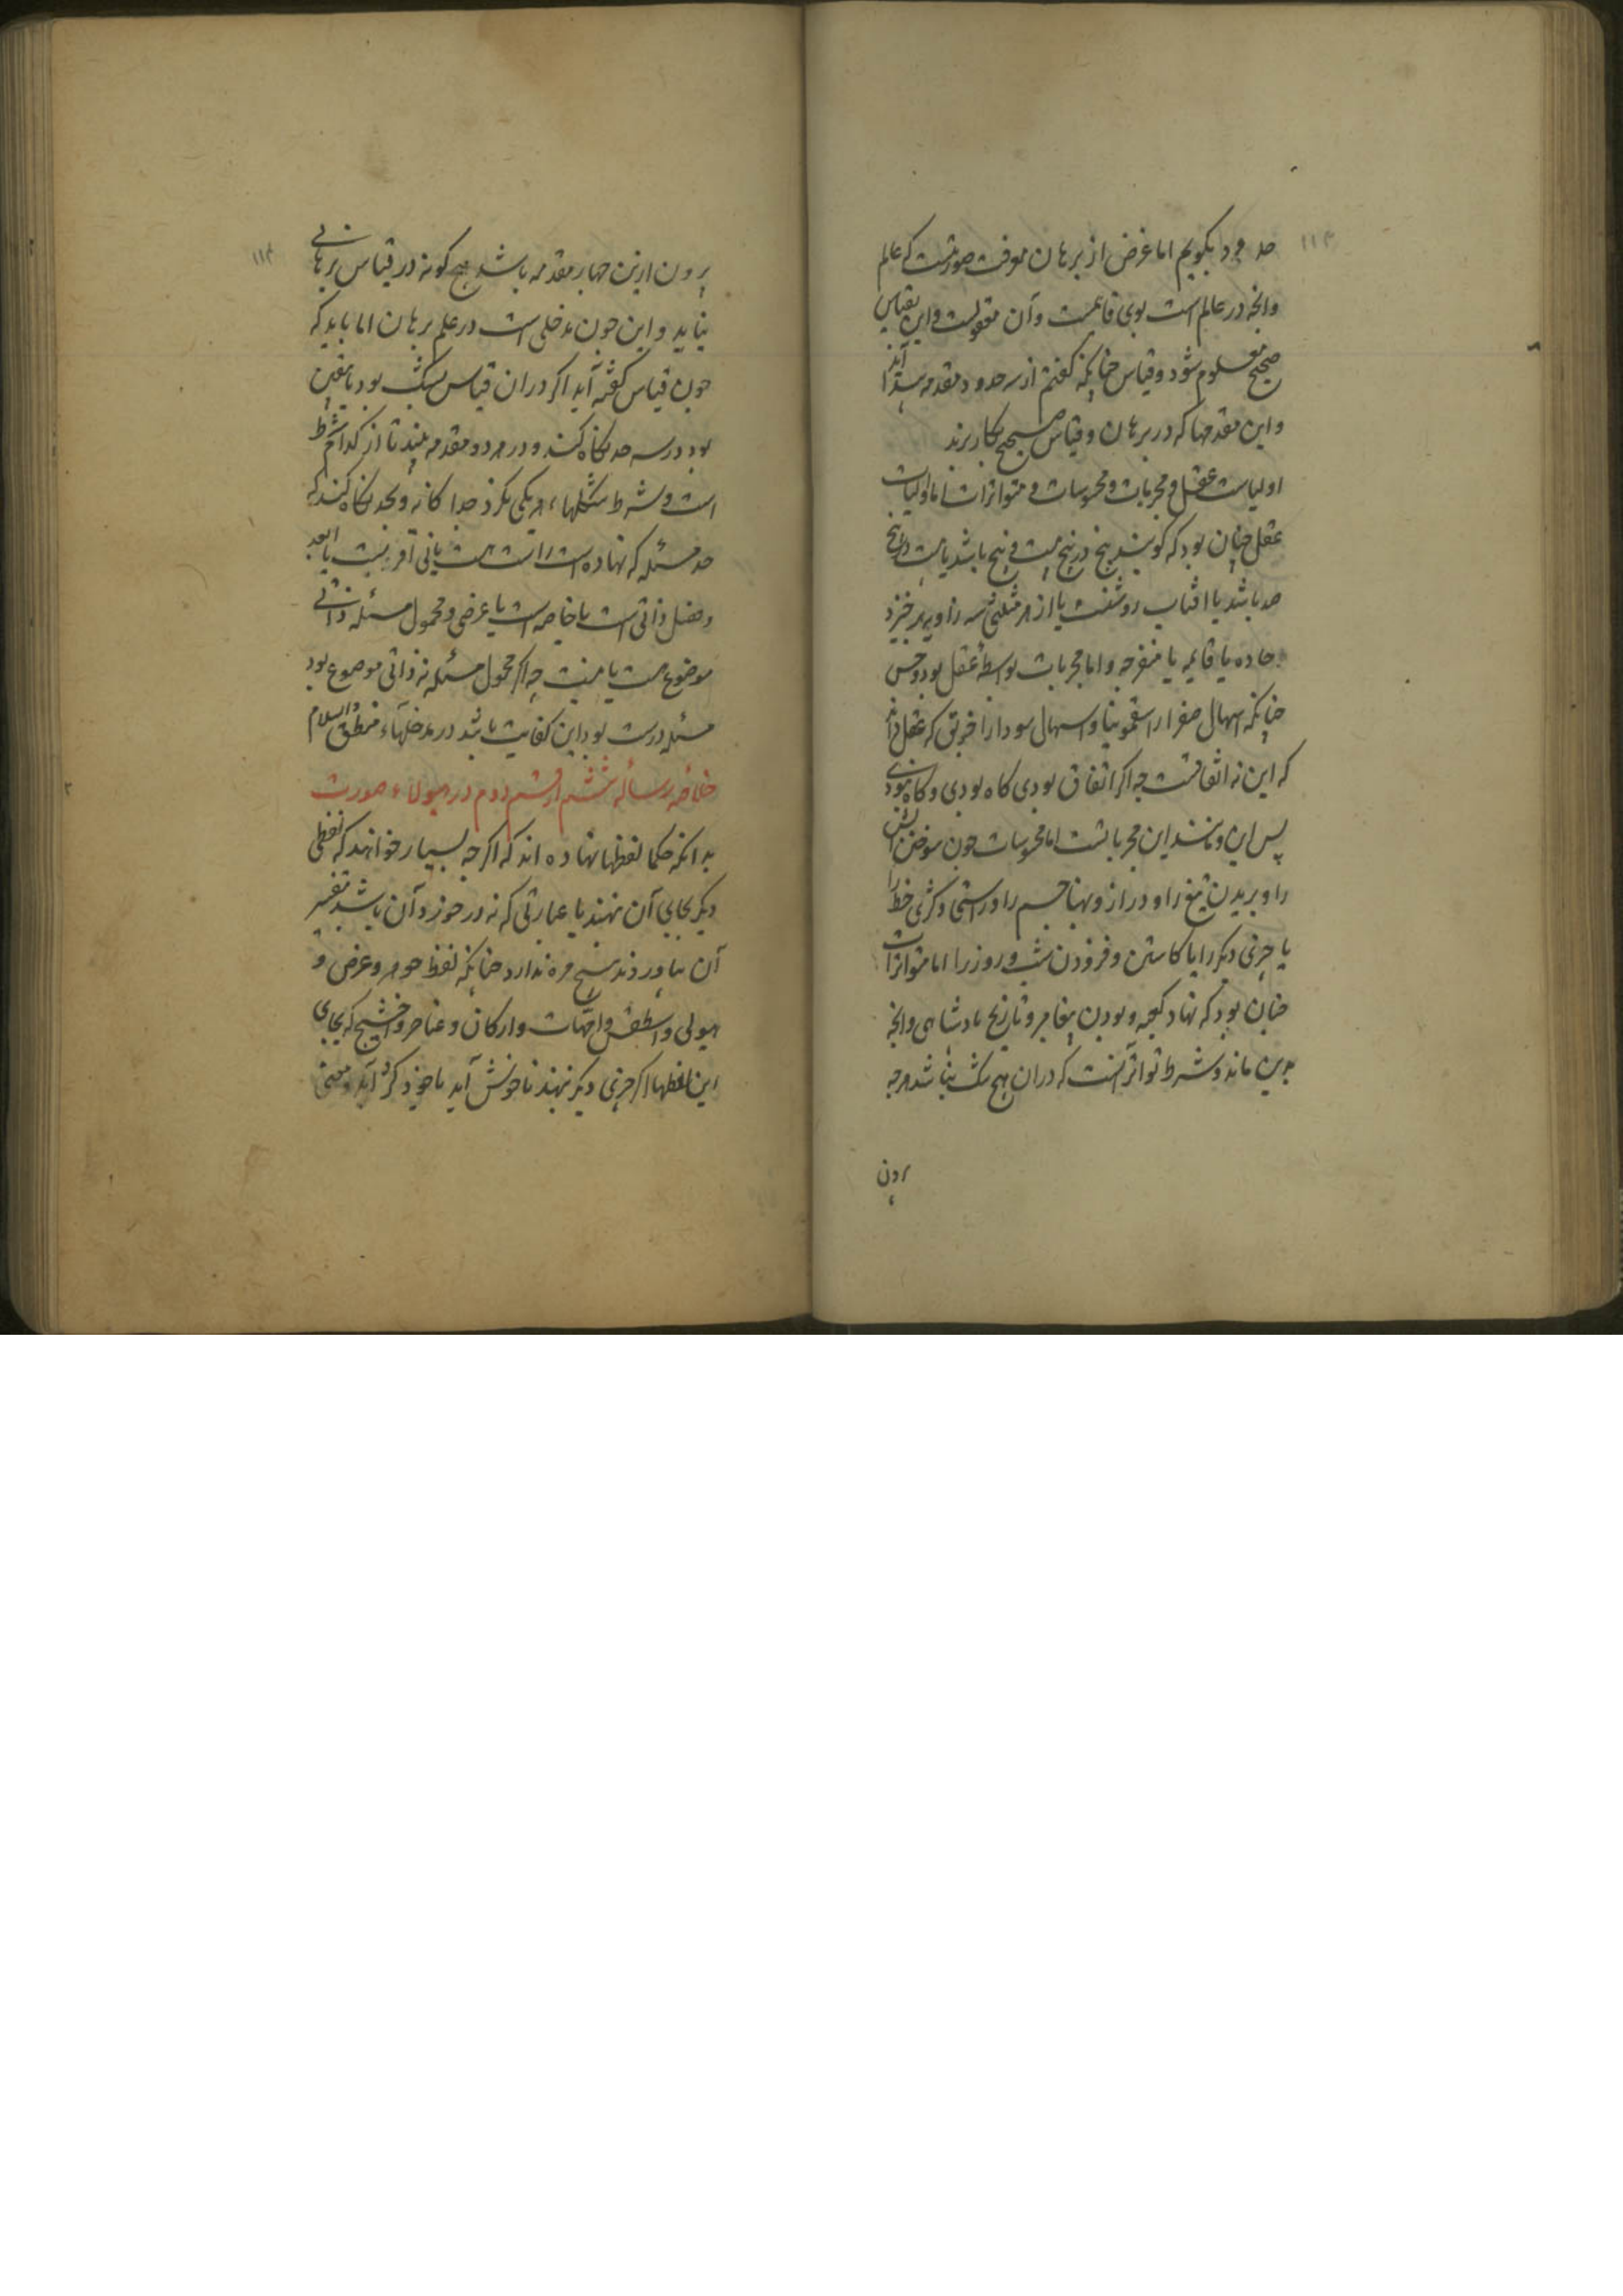 حد مرد بکویم اما غرض از برهان معرفت صورتست که عالم
وانجه در عالم است بوی قایمست وآن معقولست واین بقیاس
صحیح معلوم شود وقیاس جنانکه کفتم از سه حدود دو مقدمه بیرون آید
واین مقدمها که در برهان وقیاس صحیح بکار برند
اولیاست عقل ومجربات ومحسوسات ومتواترات اما اولیات
عقل جنان بود که کویند بنج در بنج بیست وبنج باشد یا بیست در بنج
صد باشد یا افتاب روشنست یا از هر مثلثی سه زاویه برخیزد
حاده یا قایمه یا منفرجه واما مجربات بواسطه عقل بود وحس
جنانکه اسهال صفرا را سقمونیا واسهال سودا را خربق که عقل داند
که این نه اتفاقست جه اکر اتفاق بودی کاه بودی وکاه نبودی
پس این ومانند این مجرباتست اما محسوسات جون سوختن اتش
را وبریدن تیغ را ودراز وبهنا جسم را وراستی وکژی خط را
یا جیزی دیکر را یا کاستن وفزودن شب وروز را اما متواترات
جنان بود که نهاد کعبه وبودن پیغامبر وتاریخ بادشاهی وانجه
بدین ماند وشرط تواتر آنست که دران هیج شک نباشد هرجه
برون
برون ازین جهار مقدمه باشد هیج کونه در قیاس برهانی
نیاید واین جون مدخلی است در علم برهان اما باید که
جون قیاس کفته آید اکر دران قیاس بشک بود یا یقین
بود در سه حد نکاه کنند ودر هر دو مقدمه بینند تا از کدام شرط
است وشرط شکلها هر یکی بکرذ جدا کانه وبحد نکاه کنند که
حد مسئله که نهاده است راست هست یانی اقربست یا ابعد
وفصل ذاتی است یا خاصه است یا عرضی ومحمول مسئله ذاتی
موضوع هست یا نیست جه اکر محمول مسئله نه ذاتی موضوع بود
مسئله درست بود این کفایت باشد در مدخلهاء منطق والسلام
خلاصه رساله ششم از قسم دوم در هیولاء صورت
بدانکه حکما لفظها نهاده اند که اکر جه بسیار خواهند که لفظی
دیکر بجای آن نهند یا عبارتی که نه در خورد آن باشد بتفسیر
آن بیاورند هیج مزه ندارد جنانکه لفظ جوهر وعرض و
هیولی واسطقس وامهات وارکان وعناصر واخشیج که بجای
این لفظها اکر جیزی دیکر نهند ناخوش آید یا خود کژ آید ومعنی